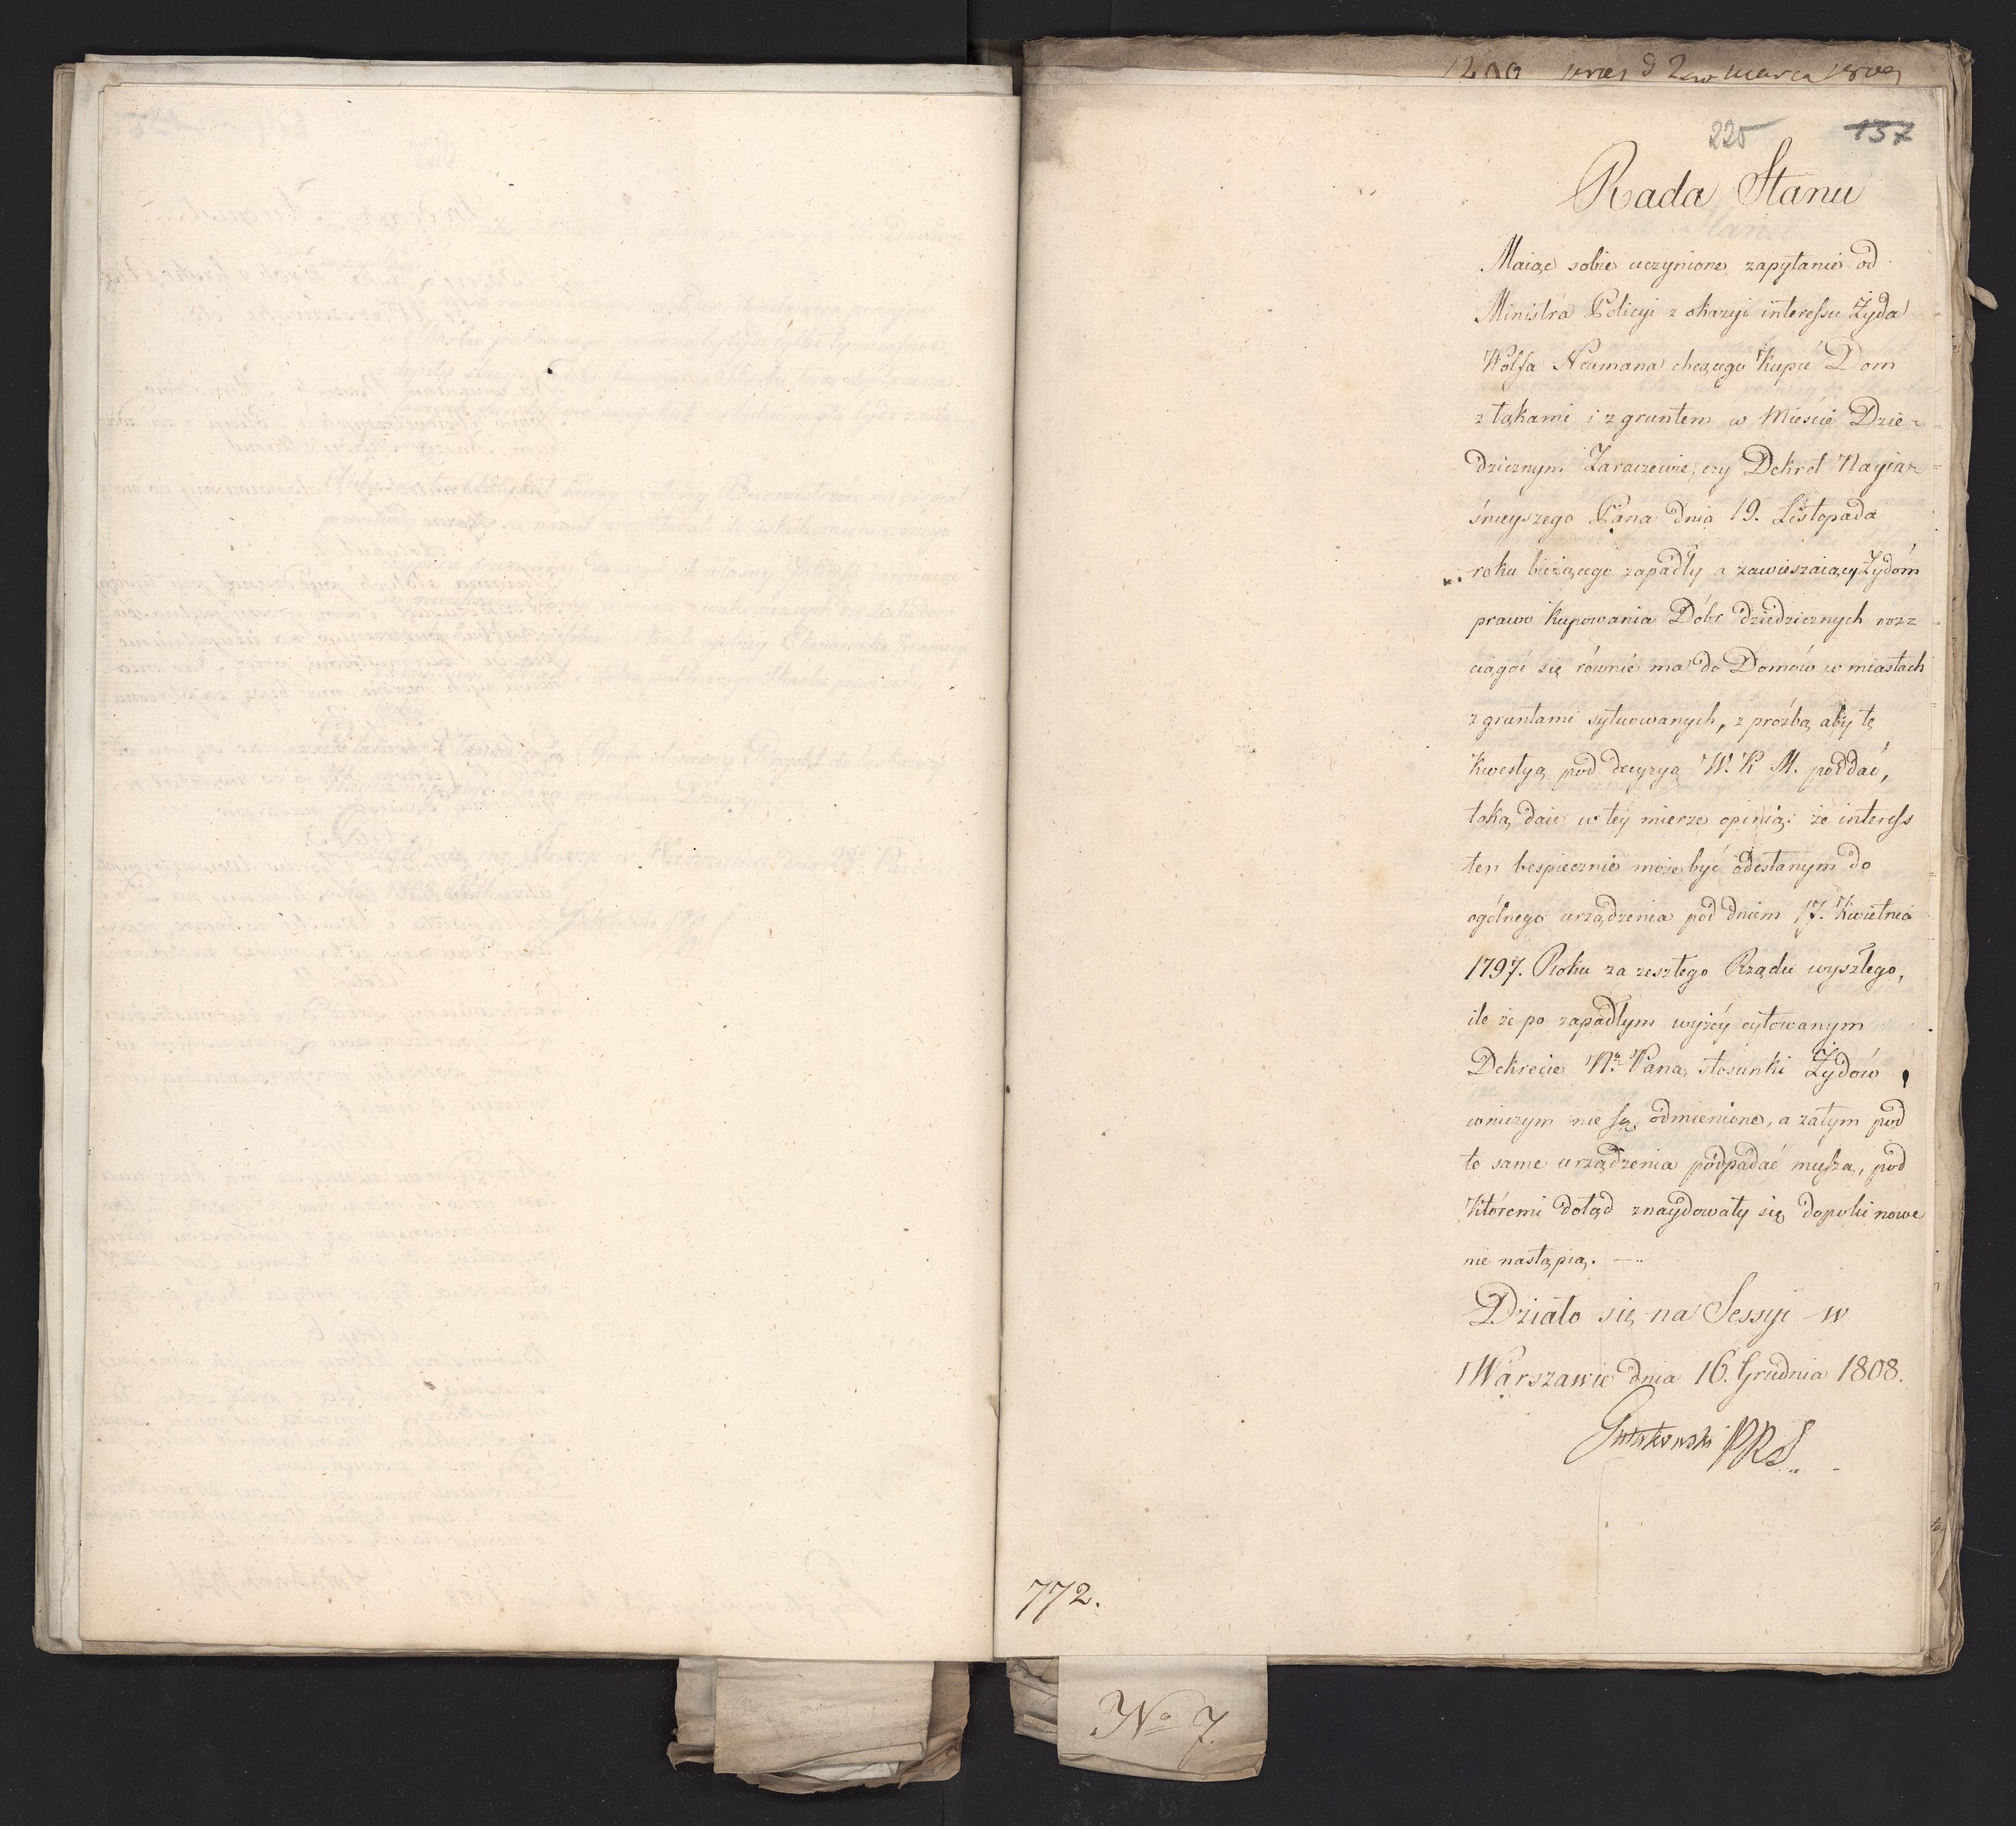 225 137
Rada Stanu
Maiąc sobie uczynione zapytanie od
Ministra Policyi z okazyi interessu Żyda
Wolfa Neumana chcącego kupić Dom
z łąkami i z gruntem w Mieście Dzie-
dzicznym Zaraczewie, czy Dekret Nayia-
śnieyszego Pana dnia 19. Listopada
roku bieżącego zapadły a zawieszaiący Żydóm
prawo kupowania Dóbr dziedzicznych roz-
ciągać się równie ma do Domów w miastach
z gruntami sytuowanych, z proźbą aby tę
kwestyą pod decyzyą W. K. M. poddać,
taką daie w téy mierze opinią: że interess
ten bespiecznie może być odesłanym do
ogólnego urządzenia pod dniem 17. Kwietnia
1797. Roku za zeszłego Rządu wyszłego,
ile że po zapadłym wyżéy cytowanym
Dekrecie N. Pana, stosunki Żydów
wniczym nie są odmienione, a zatym pod
te same urządzenia podpadać muszą, pod
któremi dotąd znaydowały się, dopóki nowe
nie nastąpią. —
Działo się na Sessyi w
Warszawie dnia 16. Grudnia 1808.
Gutakowski PRS
772.
No 7.